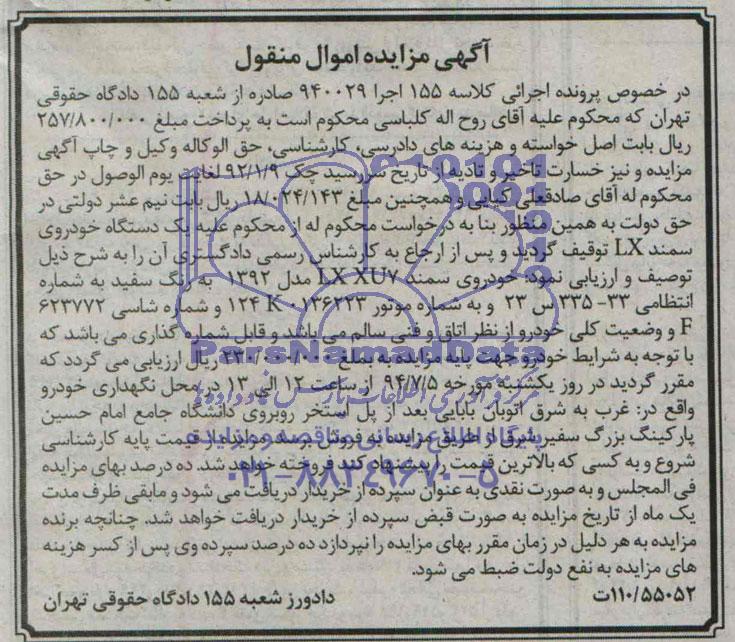 آگهی مزایده اموال منقول
در خصوص پرونده اجرائی کلاسه ۱۵۵ اجرا ۹۴۰۰۲۹ صادره از شعبه ۱۵۵ دادگاه حقوقی
تهران که محکوم علیه آقای روح اله کلباسی محکوم است به پرداخت مبلغ ۲۵۷/۸۰۰/۰۰۰
ریال بابت اصل خواسته و هزینه های دادرسی، کارشناسی، حق الوکاله وکیل و چاپ آگهی
مزایده و نیز خسارت تاخیر و تادیه از تاریخ سررسید چک ۹۲/۱/۹ لغایت یوم الوصول در حق
محکوم له آقای صادقعلی کیایی و همچنین مبلغ ۱۸/۰۲۴/۱۴۳ ریال بابت نیم عشر دولتی در
حق دولت به همین منظور بنا به درخواست محکوم له از محکوم علیه یک دستگاه خودروی
سمند LX توقیف گردید و پس از ارجاع به کارشناس رسمی دادگستری آن را به شرح ذیل
توصیف و ارزیابی نمود: خودروی سمند LX XU۷ مدل ۱۳۹۲ به رنگ سفید به شماره
انتظامی ۳۳- ۳۳۵س ۲۳ و به شماره موتور ۱۲۴ K ۰۱۳۶۲۲۳ و شماره شاسی ۶۲۳۷۷۲
F و وضعیت کلی خودرو از نظر اتاق و فنی سالم می باشد و قابل شماره گذاری می باشد که
با توجه به شرایط خودرو جهت پایه مزایده به مبلغ ۲۳۰/۰۰۰/۰۰۰ ریال ارزیابی می گردد که
مقرر گردید در روز یکشنبه مورخه ۹۴/۷/۵ از ساعت ۱۲ الی ۱۳ در محل نگهداری خودرو
واقع در: غرب به شرق اتوبان بابایی بعد از پل استخر روبروی دانشگاه جامع امام حسین
پارکینگ بزرگ سفیر شرق از طریق مزایده به فروش برسد. مزایده از قیمت پایه کارشناسی
شروع و به کسی که بالاترین قیمت را پیشنهاد کند فروخته خواهد شد. ده درصد بهای مزایده
فی المجلس و به صورت نقدی به عنوان سپرده از خریدار دریافت می شود و مابقی ظرف مدت
یک ماه از تاریخ مزایده به صورت قبض سپرده از خریدار دریافت خواهد شد. چنانچه برنده
مزایده به هر دلیل در زمان مقرر بهای مزایده را نپردازد ده درصد سپرده وی پس از کسر هزینه
های مزایده به نفع دولت ضبط می شود.
۱۱۰/۵۵۰۵۲ت
دادورز شعبه ۱۵۵ دادگاه حقوقی تهران
ParsNamadData
پایگاه اطلاع رسانی مناقصه و مزایده
۰۲۱-۸۸۳۴۹۶۷۰-۵